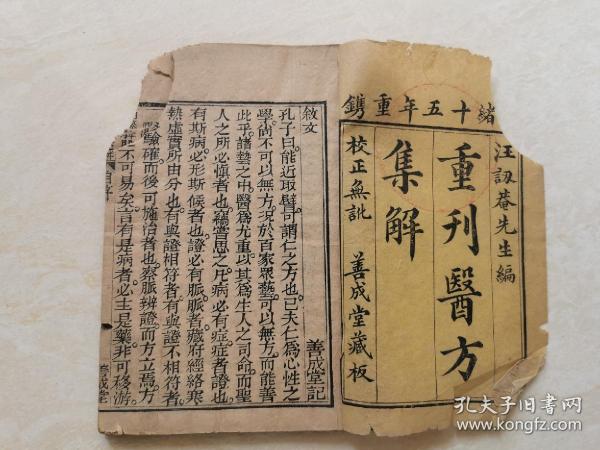 緒十五年重鐫
汪訒菴先生編
重刊醫方
集解
校正無訛 善成堂藏板
敘文
善成堂記
孔子曰能近取譬可謂仁之方也已夫仁為心性之
學尚不可以無方況於百家眾藝可以無方而能善
此乎諸藝之中醫為尤重以其為生人之司命而聖
人之所必慎者也竊嘗思之凡病必有症症者證也
有斯病必形斯候者也證必有脈脈者藏府經絡寒
熱虛實所由分也有與證相符者有與證不相符者
驗確而後可施治者也察脈辨證而方立焉方
不可易矣言有是病者必主是藥非可移游
善成堂
孔夫子旧书网
www.kongfz.com